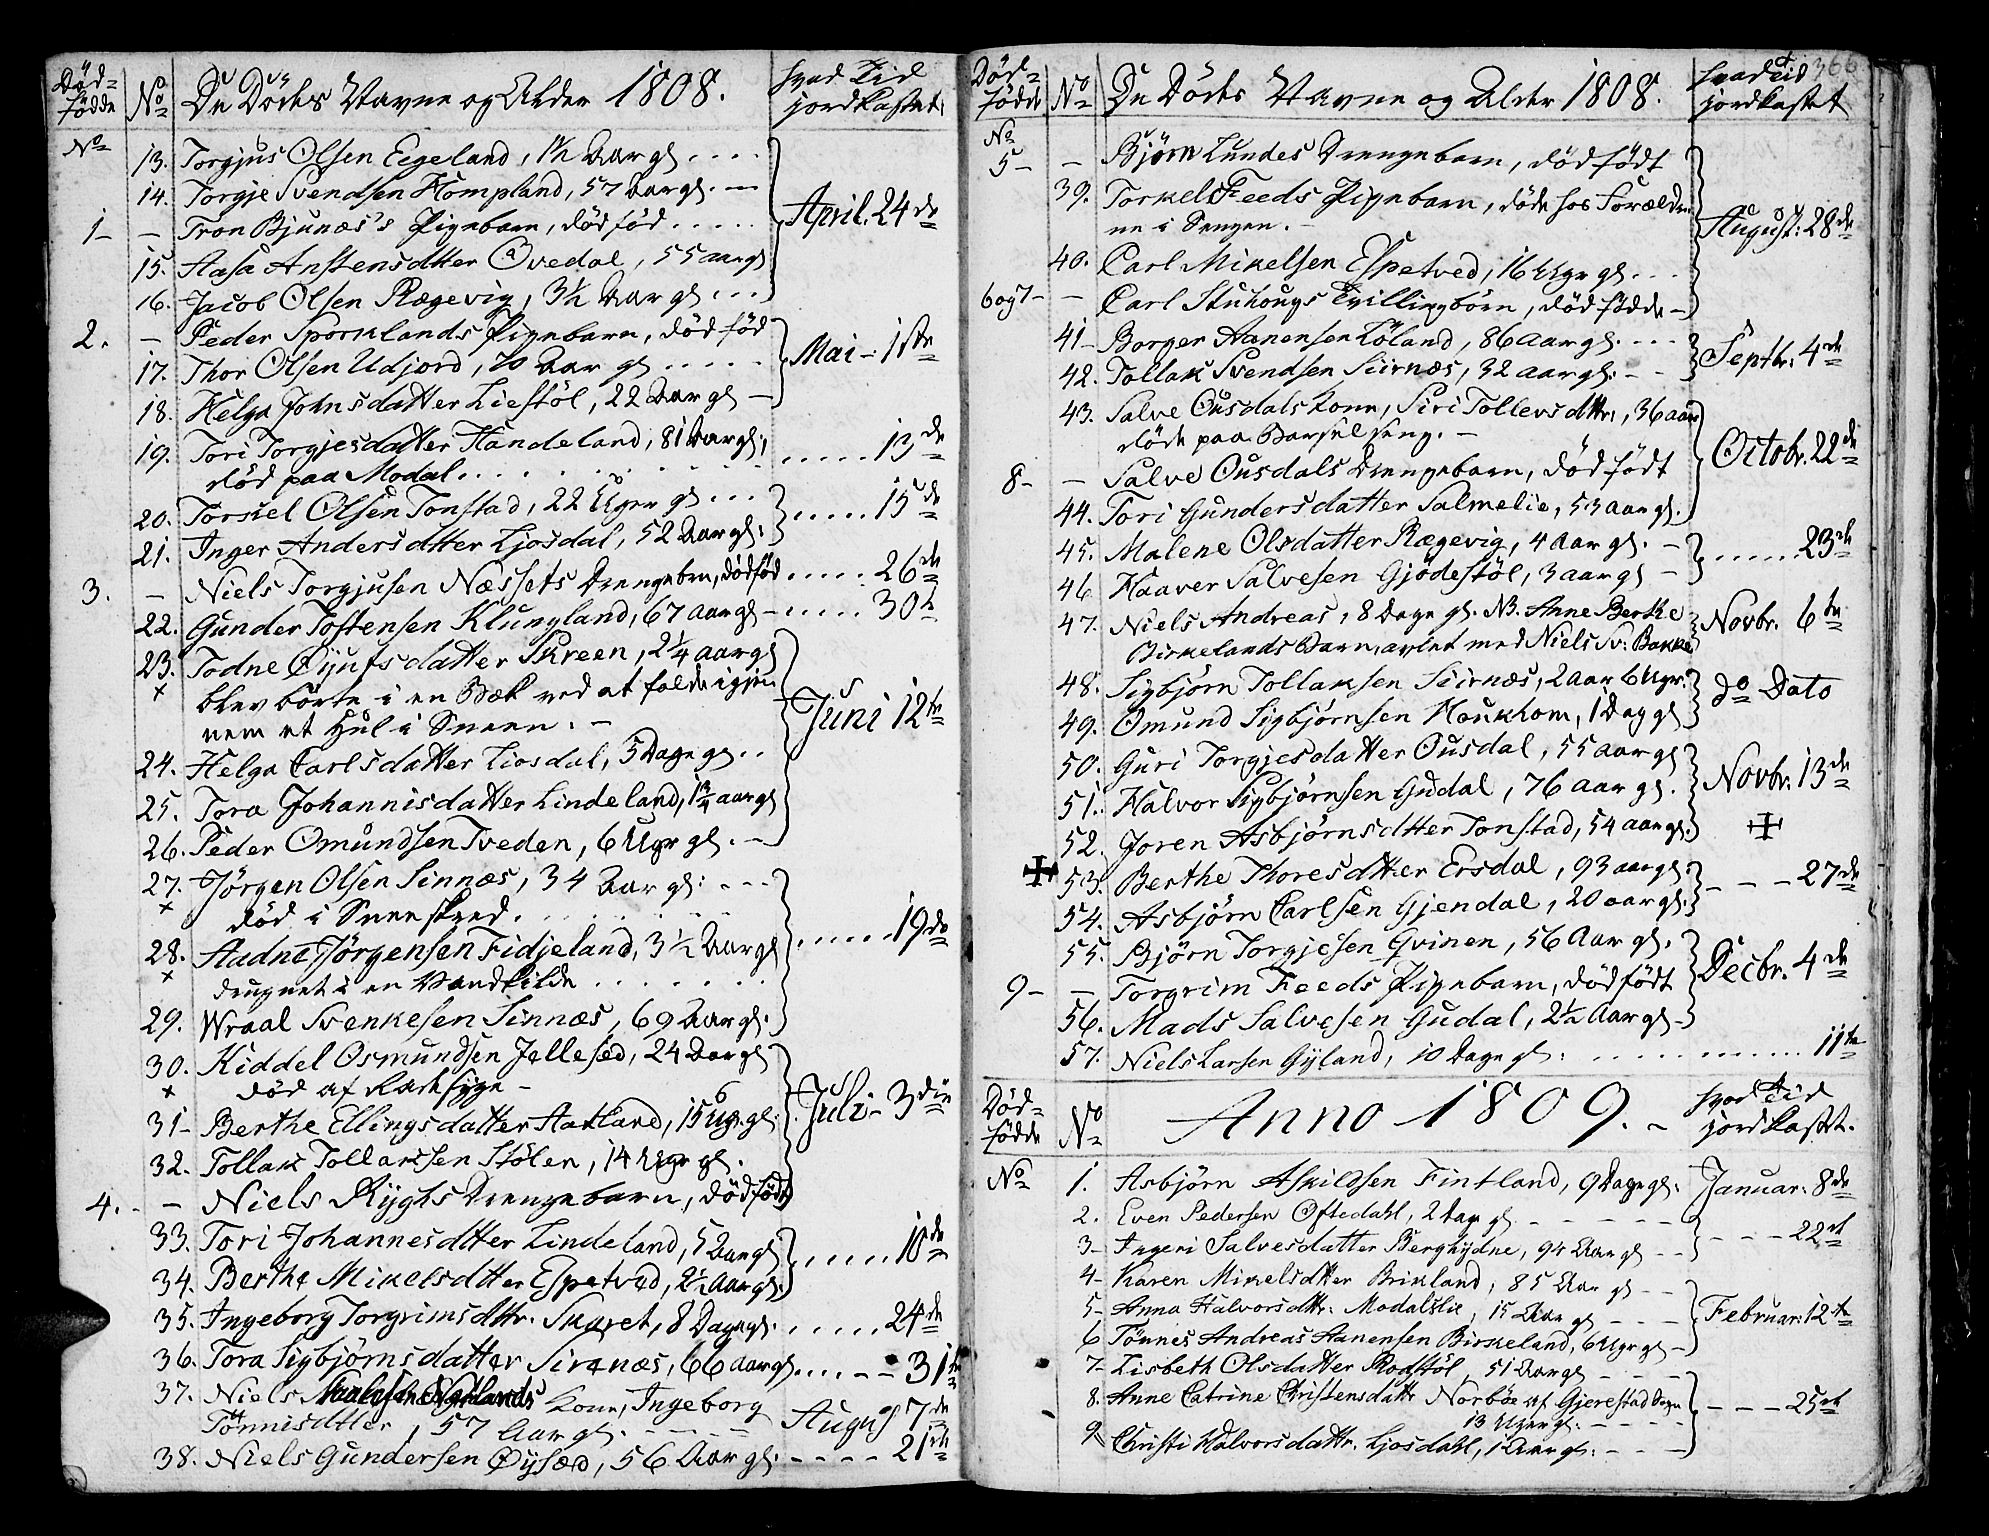 Død-
fødde
No
De Dödes Navne og Alder 1808.
hvad Tid
jordkastet.
No
13. Torgjus Olsen Eegeland, 1½ Aar gl. . . .
14. Torgje Svendsen Hompland, 57 Aar gl. —
1- - Tron Bjunæs's Pigebarn, dödfød . . . . .
April. 24de
15. Aasa Anstensdtter Ovedal, 55 aar gl
16. Jacob Olsen Rægevig, 3½ Aar gl. . .
2. - Peder Sporklands Pigebarn, död fød
17. Thor Olsen Udjord, 70 Aar gl . . . .
Mai - 1ste
18. Helga Johnsdatter Liestöl, 22 Aar gl —
19. Tori Torgjesdatter Handeland, 81 Aar gl.,
död paa Modal . . . . . . . . 13de
20. Torkel Olsen Tonstad, 22 Uger gl . . .
21. Inger Andersdtter Ljosdal, 52 Aar gl.
. . . . . 15de
3. - Niels Torgjusen Næssets Drengebrn, dödfød . . . . . 26de
22. Gunder Tostensen Klungland, 67 aar gl - . . . . 30te
23. Todne Öjufsdatter Skreen, 2¼ aar gl
x blev börte i en Bæk ved at falde igjen-
nem et Hul i Sneen. -
Juni 12te
24. Helga Carlsdatter Liosdal, 5 Dage gl . .
25. Tora Johannisdatter Lindeland, 1¾ aar gl
26. Peder Omundsen Tveden, 6 Uger gl. —
27. Jørgen Olsen Sinnæs, 34 Aar gl: - - -
x död i Sneeskred. . . . . . .
28. Aadne Jörgensen Fidjeland, 3½ Aar gl
. . . . . 19de
x drugnet i en Vandkilde . . . . . . .
29. Wraal Svenkesen Sinnæs, 69 Aar gl.
30. Kiddel Osmundsen Jellesed, 24 Aar gl
x død af Radesyge -
31- Berthe Ellingsdatter Aatland, 15 Uger gl.
Juli - 3die
32. Tollak Tollaksen Stölen, 14 Uger gl.
4. - - Niels Ryghs Drengebarn, dödfødt
33. Tori Johannesdtter Lindeland, 5 Aar gl
. . . . . 10de
34. Berthe Mikelsdtter Espetved, 2½ Aar gl.
35. Ingeborg Torgrimsdttr. Skaret, 8 Dage gl. . . . . . 24de
36. Tora Sigbjörnsdatter Sirenæs, 66 aar gl. . . . - - 31te
37. Niels Kone, Ingeborg
Tönnisdtter, 57 Aar gl. - - - - -
August 7de
38. Niels Gundersen Öysæd, 56 Aar gl. - - - - 21de
366
Död-
födde
No
De Dödes Navne og Alder 1808.
hvad Tid
jordkastet
No
5- - Björn Lundes Drengebarn, dödfödt
39. Torkels Feeds Pigebarn, döde hos Forældre-
ne i Sengen. -
August: 28de
40. Carl Mikelsen Espetved, 16 Uger gl. . . .
6 og 7- - Carl Stuhougs Tvillingbörn, dödfødde -
41- Borger Aanensen Löland, 86 aar gl. - - -
Septbr: 4de
42. Tollak Svendsen Siirnæs, 32 aar gl. - -
43. Salve Ousdals Kone, Siri Tollevsdttr, 36 aar
döde paa Barselseng. -
Octobr. 22de
8- - Salve Ousdals Drengebarn, dödfödt
44. Tori Gundersdatter Salmelie, 53 aar gl.
45. Malene Olsdatter Rægevig, 4 aar gl. -
. . . . . 23de
46 Haaver Salvesen Gjödestöl, 3 aar gl -
47. Niels Andreas, 8 Dage gl. NB. Anne Berthe
Birkelands Barn, avlet med Niels Sv: Bakke
Novbr. 6te
48. Sigbjörn Tollaksen Siirnæs, 2 aar 6 Uger.
do Dato
49. Omund Sigbjörnsen Houkhom, 1 Dag gl
50. Guri Torgjesdatter Ousdal, 55 aar gl
51. Halvor Sigbjörnsen Gudal, 76 aar gl.
Novbr. 13de
52. Joren Asbjörnsdtter Tonstad, 54 aar gl.
53. Berthe Thoresdtter Ersdal, 93 aar gl.
- - - 27de
54. Asbjörn Carlsen Gjendal, 20 aar gl.
55. Björn Torgjesen Gvinen, 56 Aar gl.
9- - Torgrim Feeds Pigebarn, dödfödt
Decbr. 4de
56. Mads Salvesen Gudal, 2½ Aar gl -
57. Niels Larsen Gyland, 10 Dage gl: . . . . . . . . . . . . 11te
Död-
fødde
No
Anno 1809. -
hvad Tid
jordkastet.
No
1. Asbjörn Askildsen Fintland, 9 Dage gl. Januar: 8de
2. Even Pedersen Oftedahl, 2 Dage gl. - - - - - -
- - - 22de
3- Ingeri Salvesdatter Berghydne, 94 Aar gl - -
4- Karen Mikelsdtter Brikland, 85 Aar gl - -
5- Anna Halvorsdttr: Modalslie, 15 Aar gl - - - -
Februar: 12te
6 Tönnes Andreas Aanensen Birkeland, 6 Uger gl -
7- Lisbeth Olsdatter Rodstöl, 51 Aar gl - - - -
8. Anne Catrine Christensdattr Norböe af Gjerestad Sogn
13 Uger gl. - - - - -
- - - 25de
9 Christi Halvorsdattr. Ljosdahl, 1 Aar gl. - - -